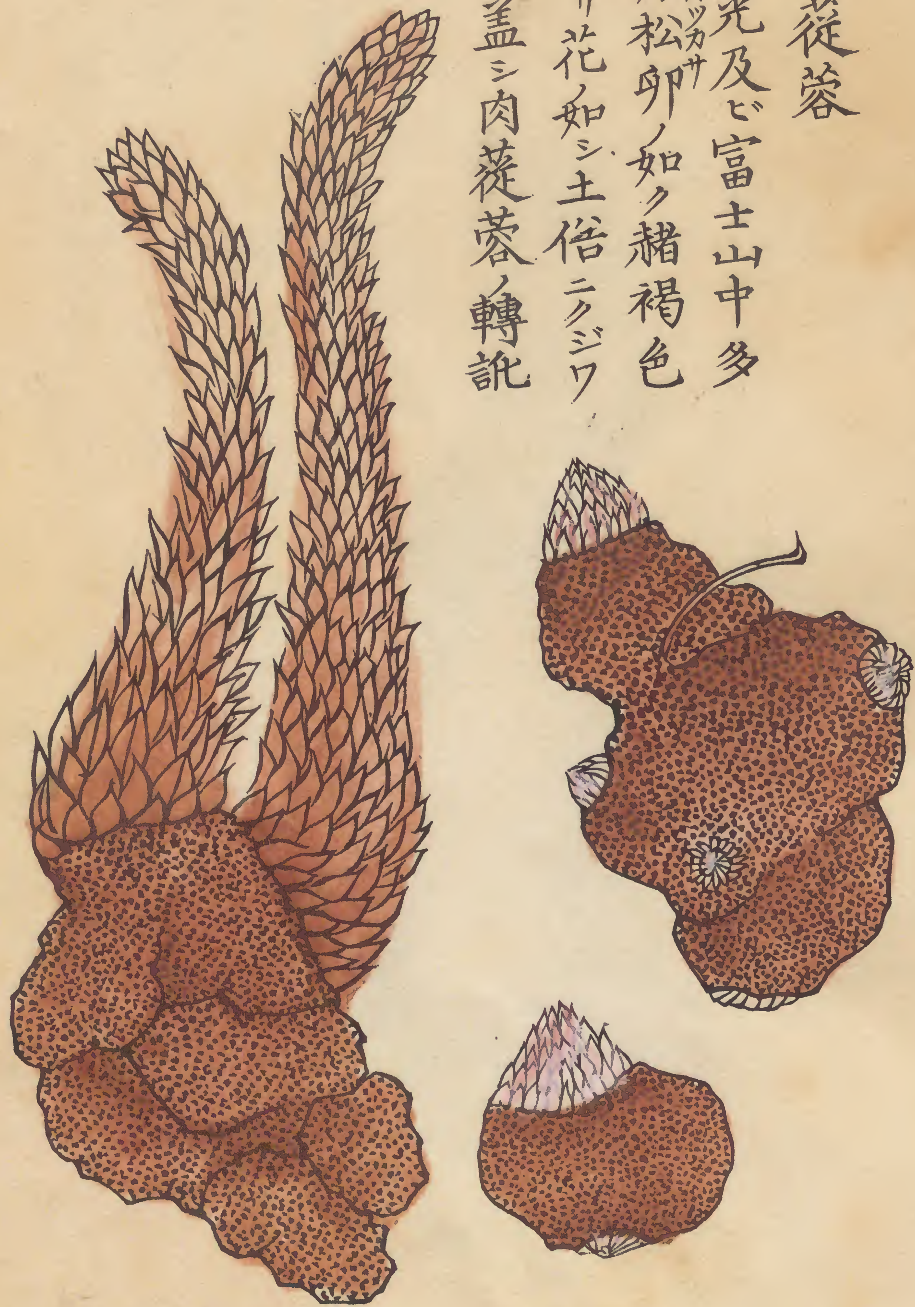 蓯蓉
光及ビ富士山中多
松卵ノ如ク赭褐色
マツカサ
リ花ノ如シ土俗ニクジワ
蓋シ肉蓯蓉ノ轉訛